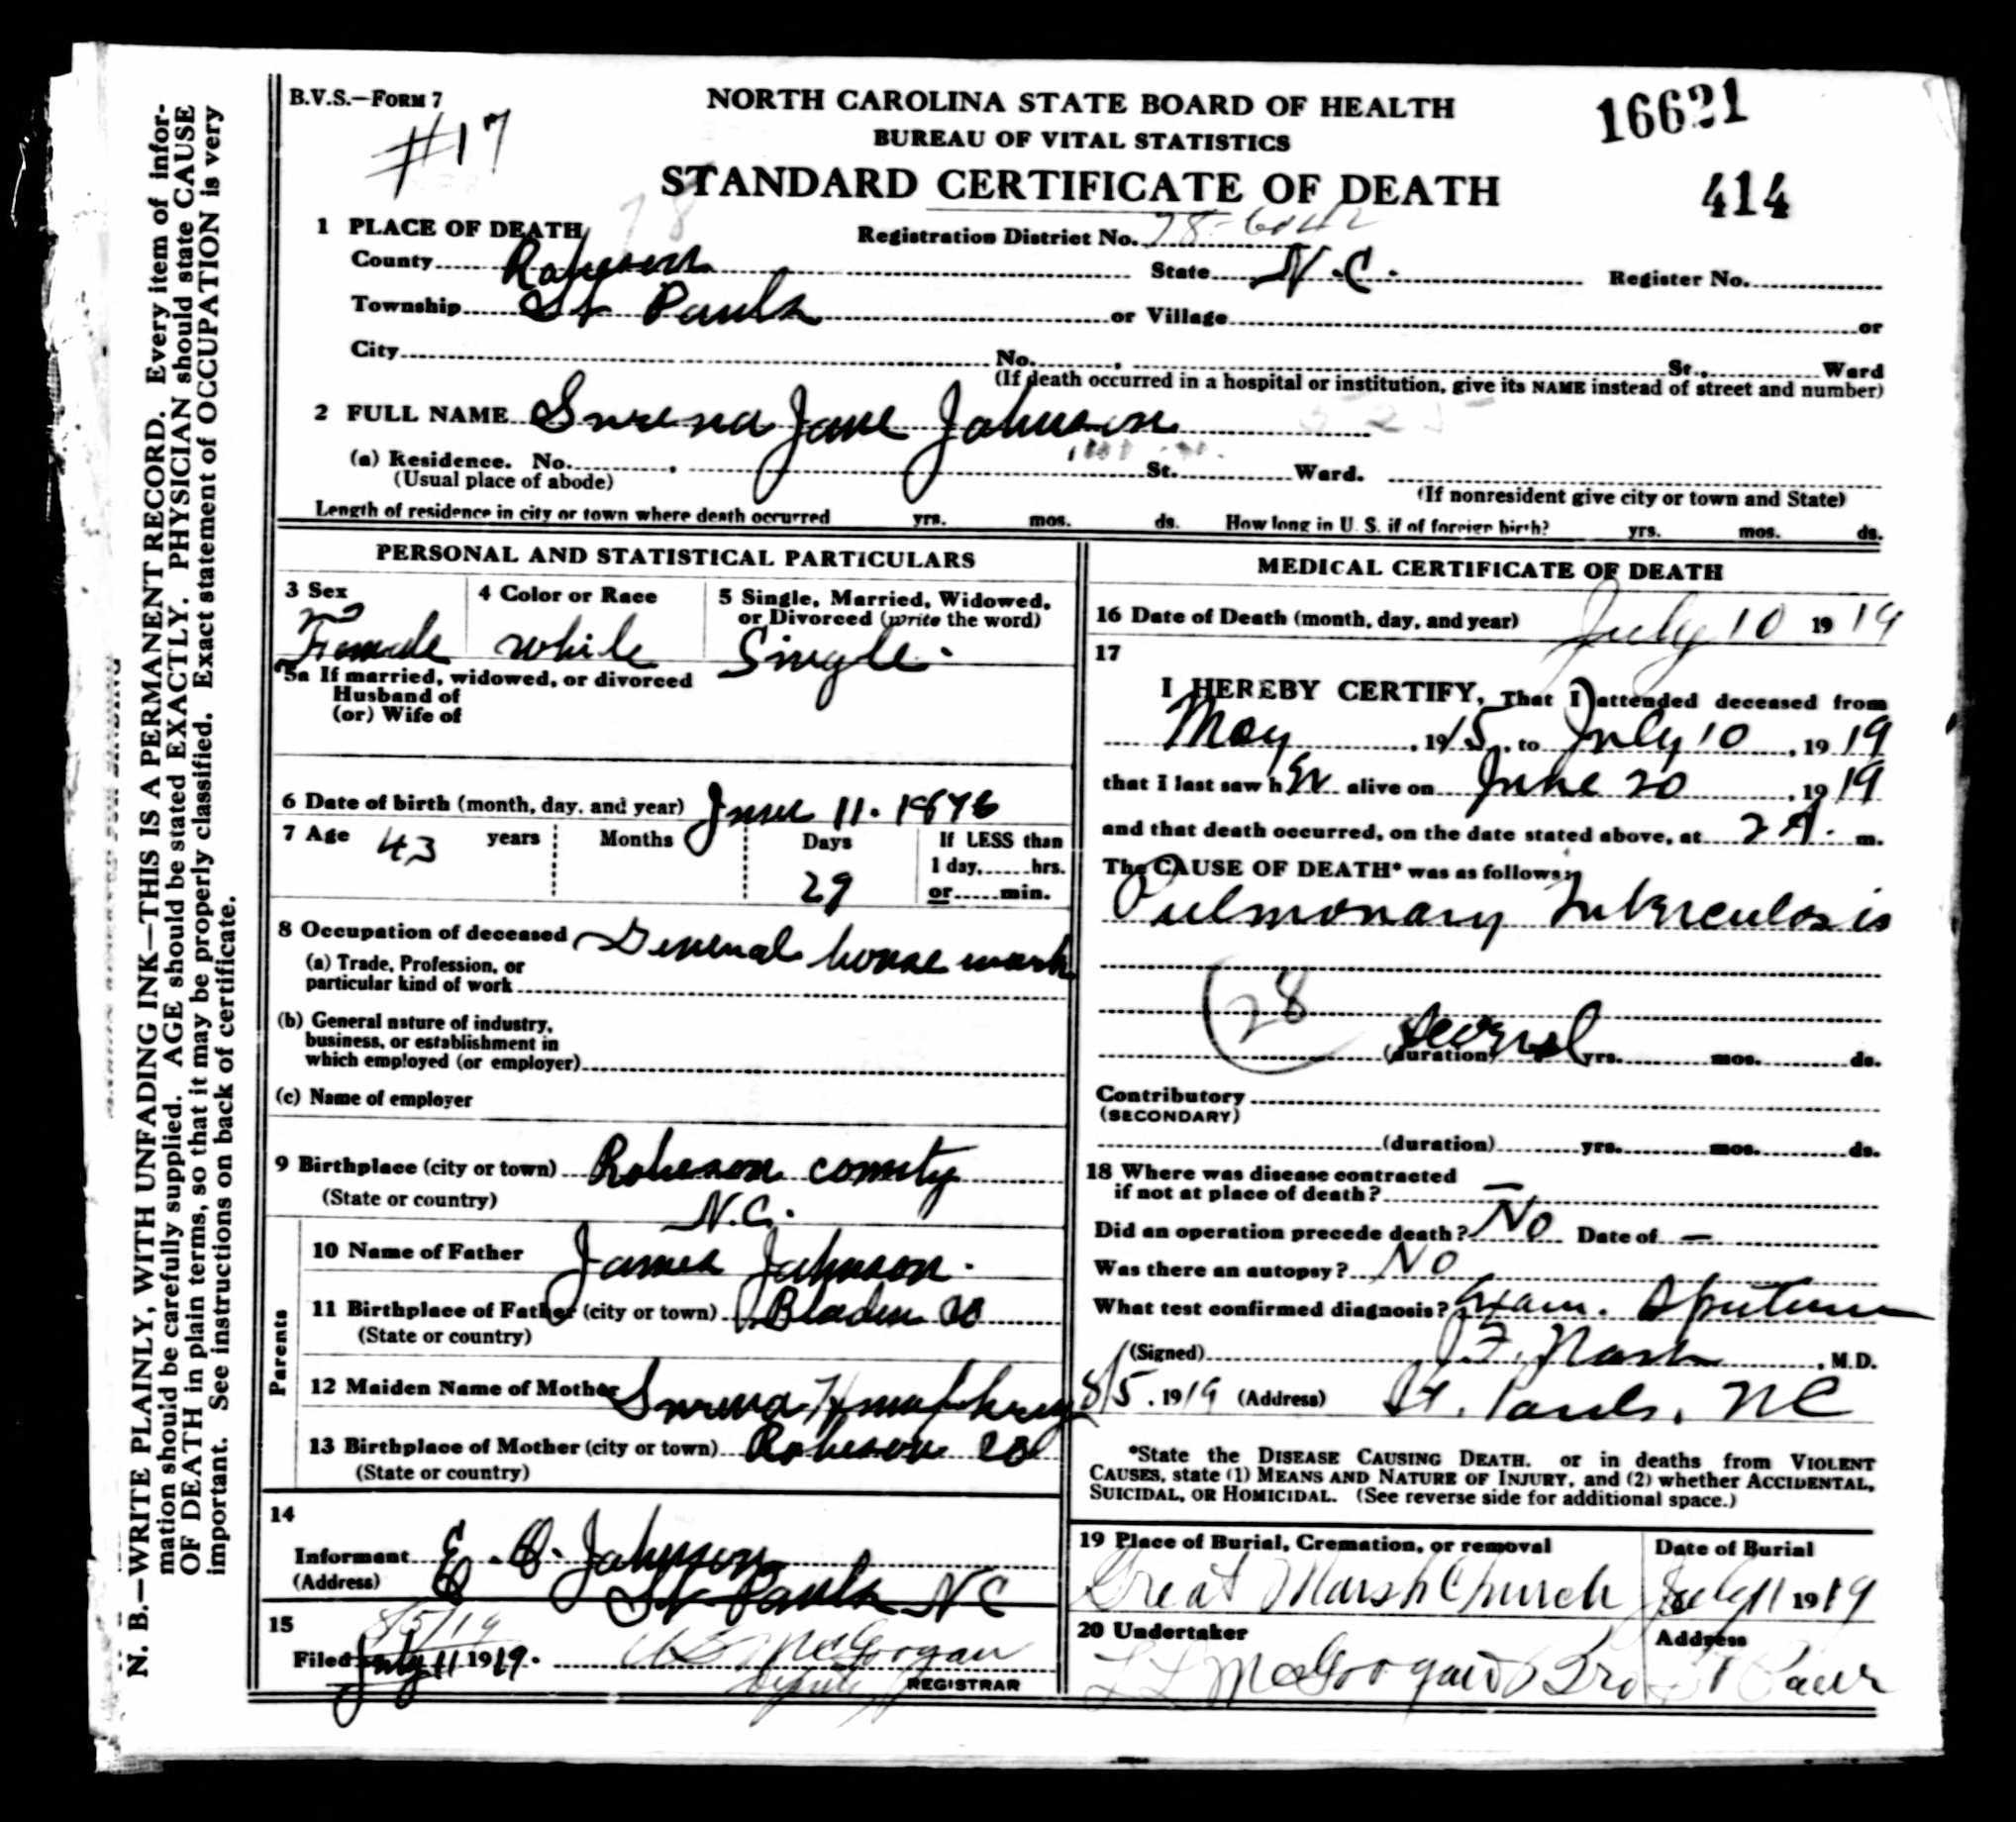 B.V.S.—FORM 7
#17
NORTH CAROLINA STATE BOARD OF HEALTH
BUREAU OF VITAL STATISTICS
STANDARD CERTIFICATE OF DEATH
16621
414
1 PLACE OF DEATH
Registration District No.
County Robeson State N.C. Register No.
Township St Pauls or Village or
City No. St., Ward
(If death occurred in a hospital or institution, give its NAME instead of street and number)
2 FULL NAME Surena Jane Johnson
(a) Residence. No. St. Ward.
(Usual place of abode) (If nonresident give city or town and State)
Length of residence in city or town where death occurred yrs. mos. ds. How long in U. S. if of foreign birth? yrs. mos. ds.
PERSONAL AND STATISTICAL PARTICULARS
3 Sex 4 Color or Race 5 Single, Married, Widowed,
or Divorced (write the word)
Female white Single.
5a If married, widowed, or divorced
Husband of
(or) Wife of
6 Date of birth (month, day, and year) June 11. 1876
7 Age 43 years Months Days If LESS than
1 day, hrs.
29 or min.
8 Occupation of deceased General house work
(a) Trade, Profession, or
particular kind of work
(b) General nature of industry,
business, or establishment in
which employed (or employer)
(c) Name of employer
9 Birthplace (city or town) Robeson county
(State or country) N.C.
Parents
10 Name of Father James Johnson.
11 Birthplace of Father (city or town) Bladen Co
(State or country)
12 Maiden Name of Mother Surena Humphrey
13 Birthplace of Mother (city or town) Robeson Co
(State or country)
14
Informent Johnson
(Address) St Pauls NC
15 8/5/19
Filed July 11 1919. McGoogan
Deputy REGISTRAR
MEDICAL CERTIFICATE OF DEATH
16 Date of Death (month, day, and year) July 10 1919
17
I HEREBY CERTIFY, That I attended deceased from
May , 1915, to July 10 , 1919
that I last saw her alive on June 20 , 1919
and that death occurred, on the date stated above, at 2 A. m.
The CAUSE OF DEATH* was as follows:
Pulmonary Tuberculosis
28
several
(duration) yrs. mos. ds.
Contributory
(SECONDARY)
(duration) yrs. mos. ds.
18 Where was disease contracted
if not at place of death? —
Did an operation precede death? No Date of —
Was there an autopsy? No
What test confirmed diagnosis? Exam. Sputum
(Signed) J.F. Nash , M.D.
8/5, 1919 (Address) St. Pauls, NC
*State the DISEASE CAUSING DEATH. or in deaths from VIOLENT
CAUSES, state (1) MEANS AND NATURE OF INJURY, and (2) whether ACCIDENTAL,
SUICIDAL, OR HOMICIDAL. (See reverse side for additional space.)
19 Place of Burial, Cremation, or removal Date of Burial
Great Marsh Church July 11 1919
20 Undertaker Address
McGoogan Bro St Pauls
N. B.—WRITE PLAINLY, WITH UNFADING INK—THIS IS A PERMANENT RECORD. Every item of infor-
mation should be carefully supplied. AGE should be stated EXACTLY. PHYSICIAN should state CAUSE
OF DEATH in plain terms, so that it may be properly classified. Exact statement of OCCUPATION is very
important. See instructions on back of certificate.